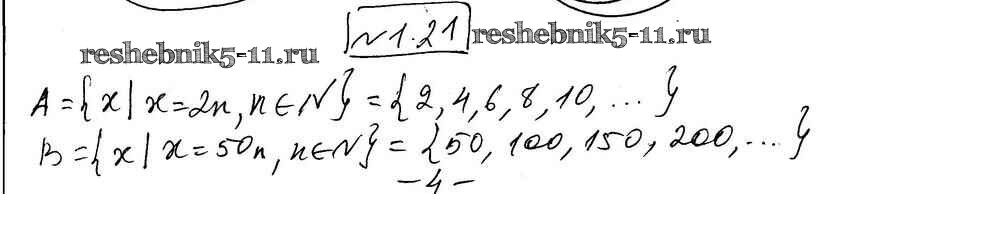 №1.21
reshebnik5-11.ru reshebnik5-11.ru
A={x|x=2n, n∈N}={2,4,6,8,10,...}
B={x|x=50n, n∈N}={50,100,150,200,...}
-4-